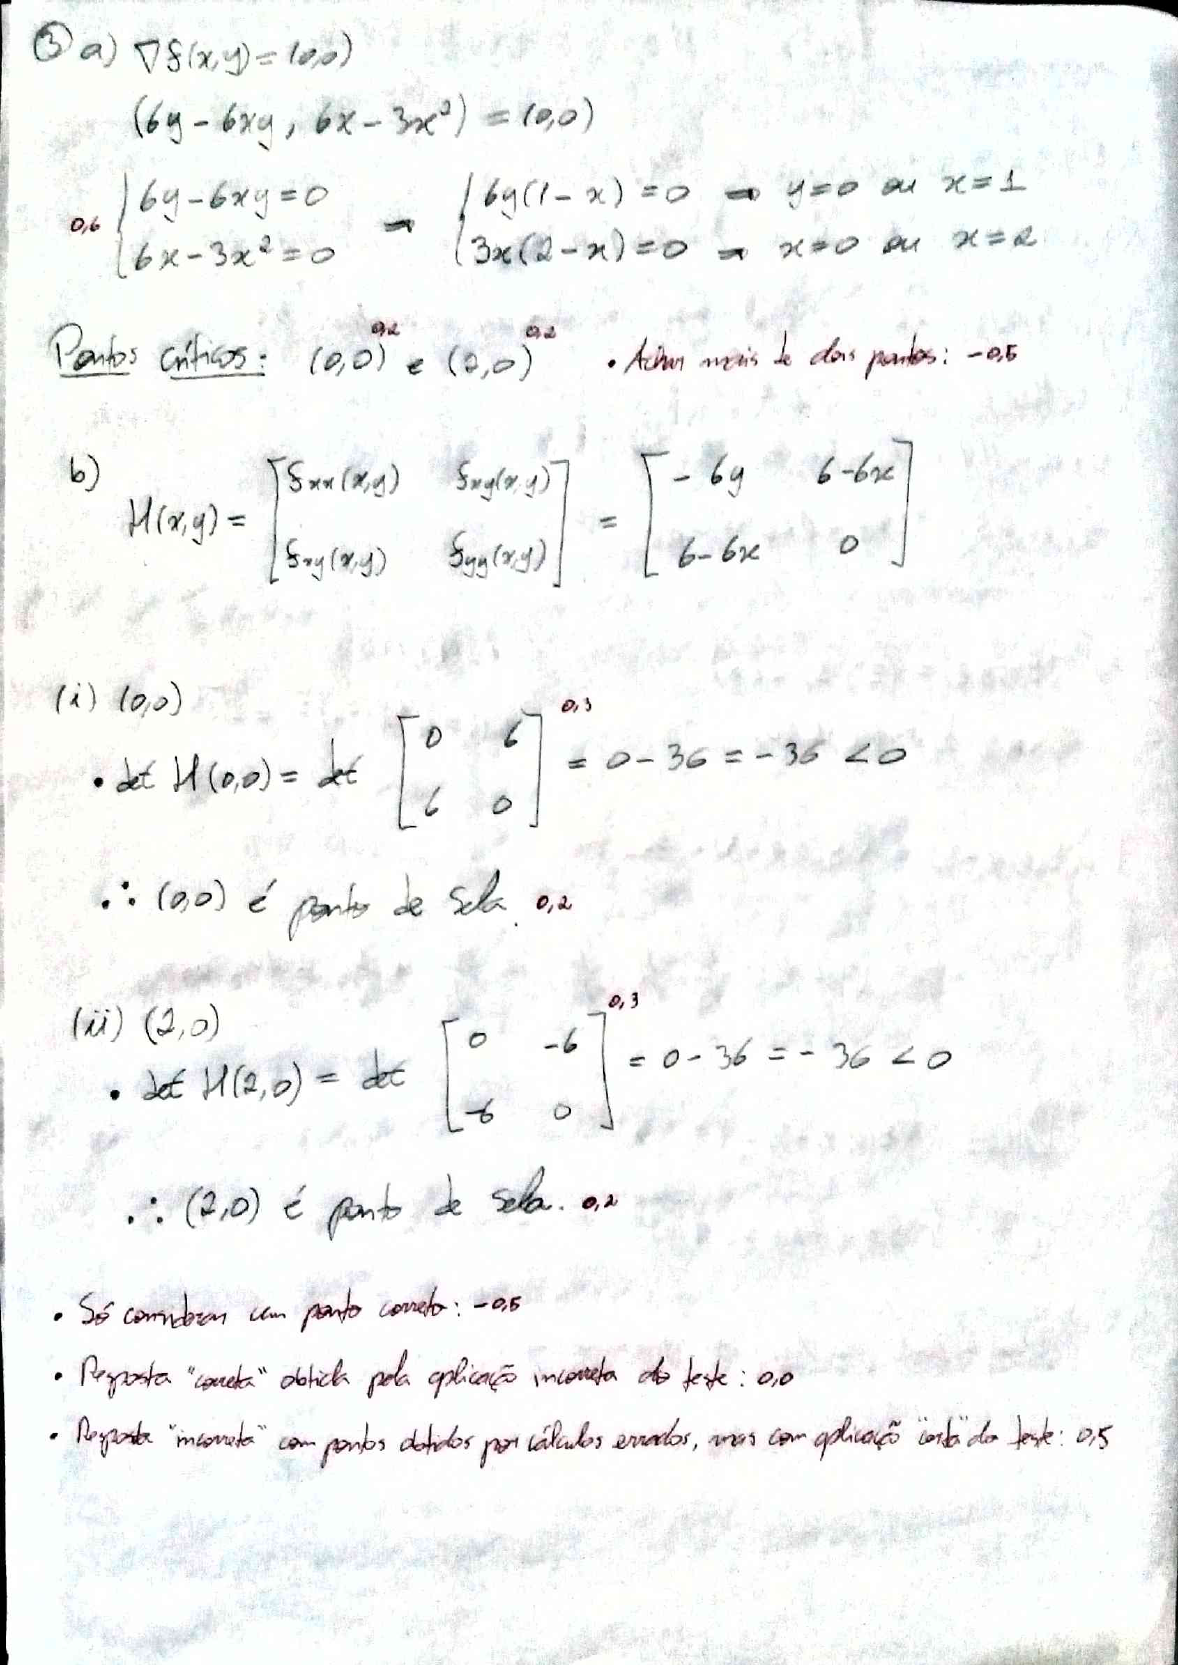 ③ a) ∇f(x,y) = (0,0)
(6y - 6xy, 6x - 3x²) = (0,0)
0,6 { 6y - 6xy = 0 → { 6y(1-x) = 0 → y=0 ou x=1
{ 6x - 3x² = 0 { 3x(2-x) = 0 → x=0 ou x=2
Pontos críticos: (0,0) 0,2 e (2,0) 0,2 • Achar mais de dois pontos: -0,5
b) H(x,y) = [ fxx(x,y) fxy(x,y) ] = [ -6y 6-6x ]
[ fxy(x,y) fyy(x,y) ] [ 6-6x 0 ]
(i) (0,0)
• det H(0,0) = det [ 0 6 ] 0,3 = 0 - 36 = -36 < 0
[ 6 0 ]
∴ (0,0) é ponto de sela. 0,2
(ii) (2,0)
• det H(2,0) = det [ 0 -6 ] 0,3 = 0 - 36 = -36 < 0
[ -6 0 ]
∴ (2,0) é ponto de sela. 0,2
• Só consideram um ponto correto: -0,5
• Resposta "correta" obtida pela aplicação incorreta do teste: 0,0
• Resposta "incorreta" com pontos obtidos por cálculos errados, mas com aplicação "certa" do teste: 0,5